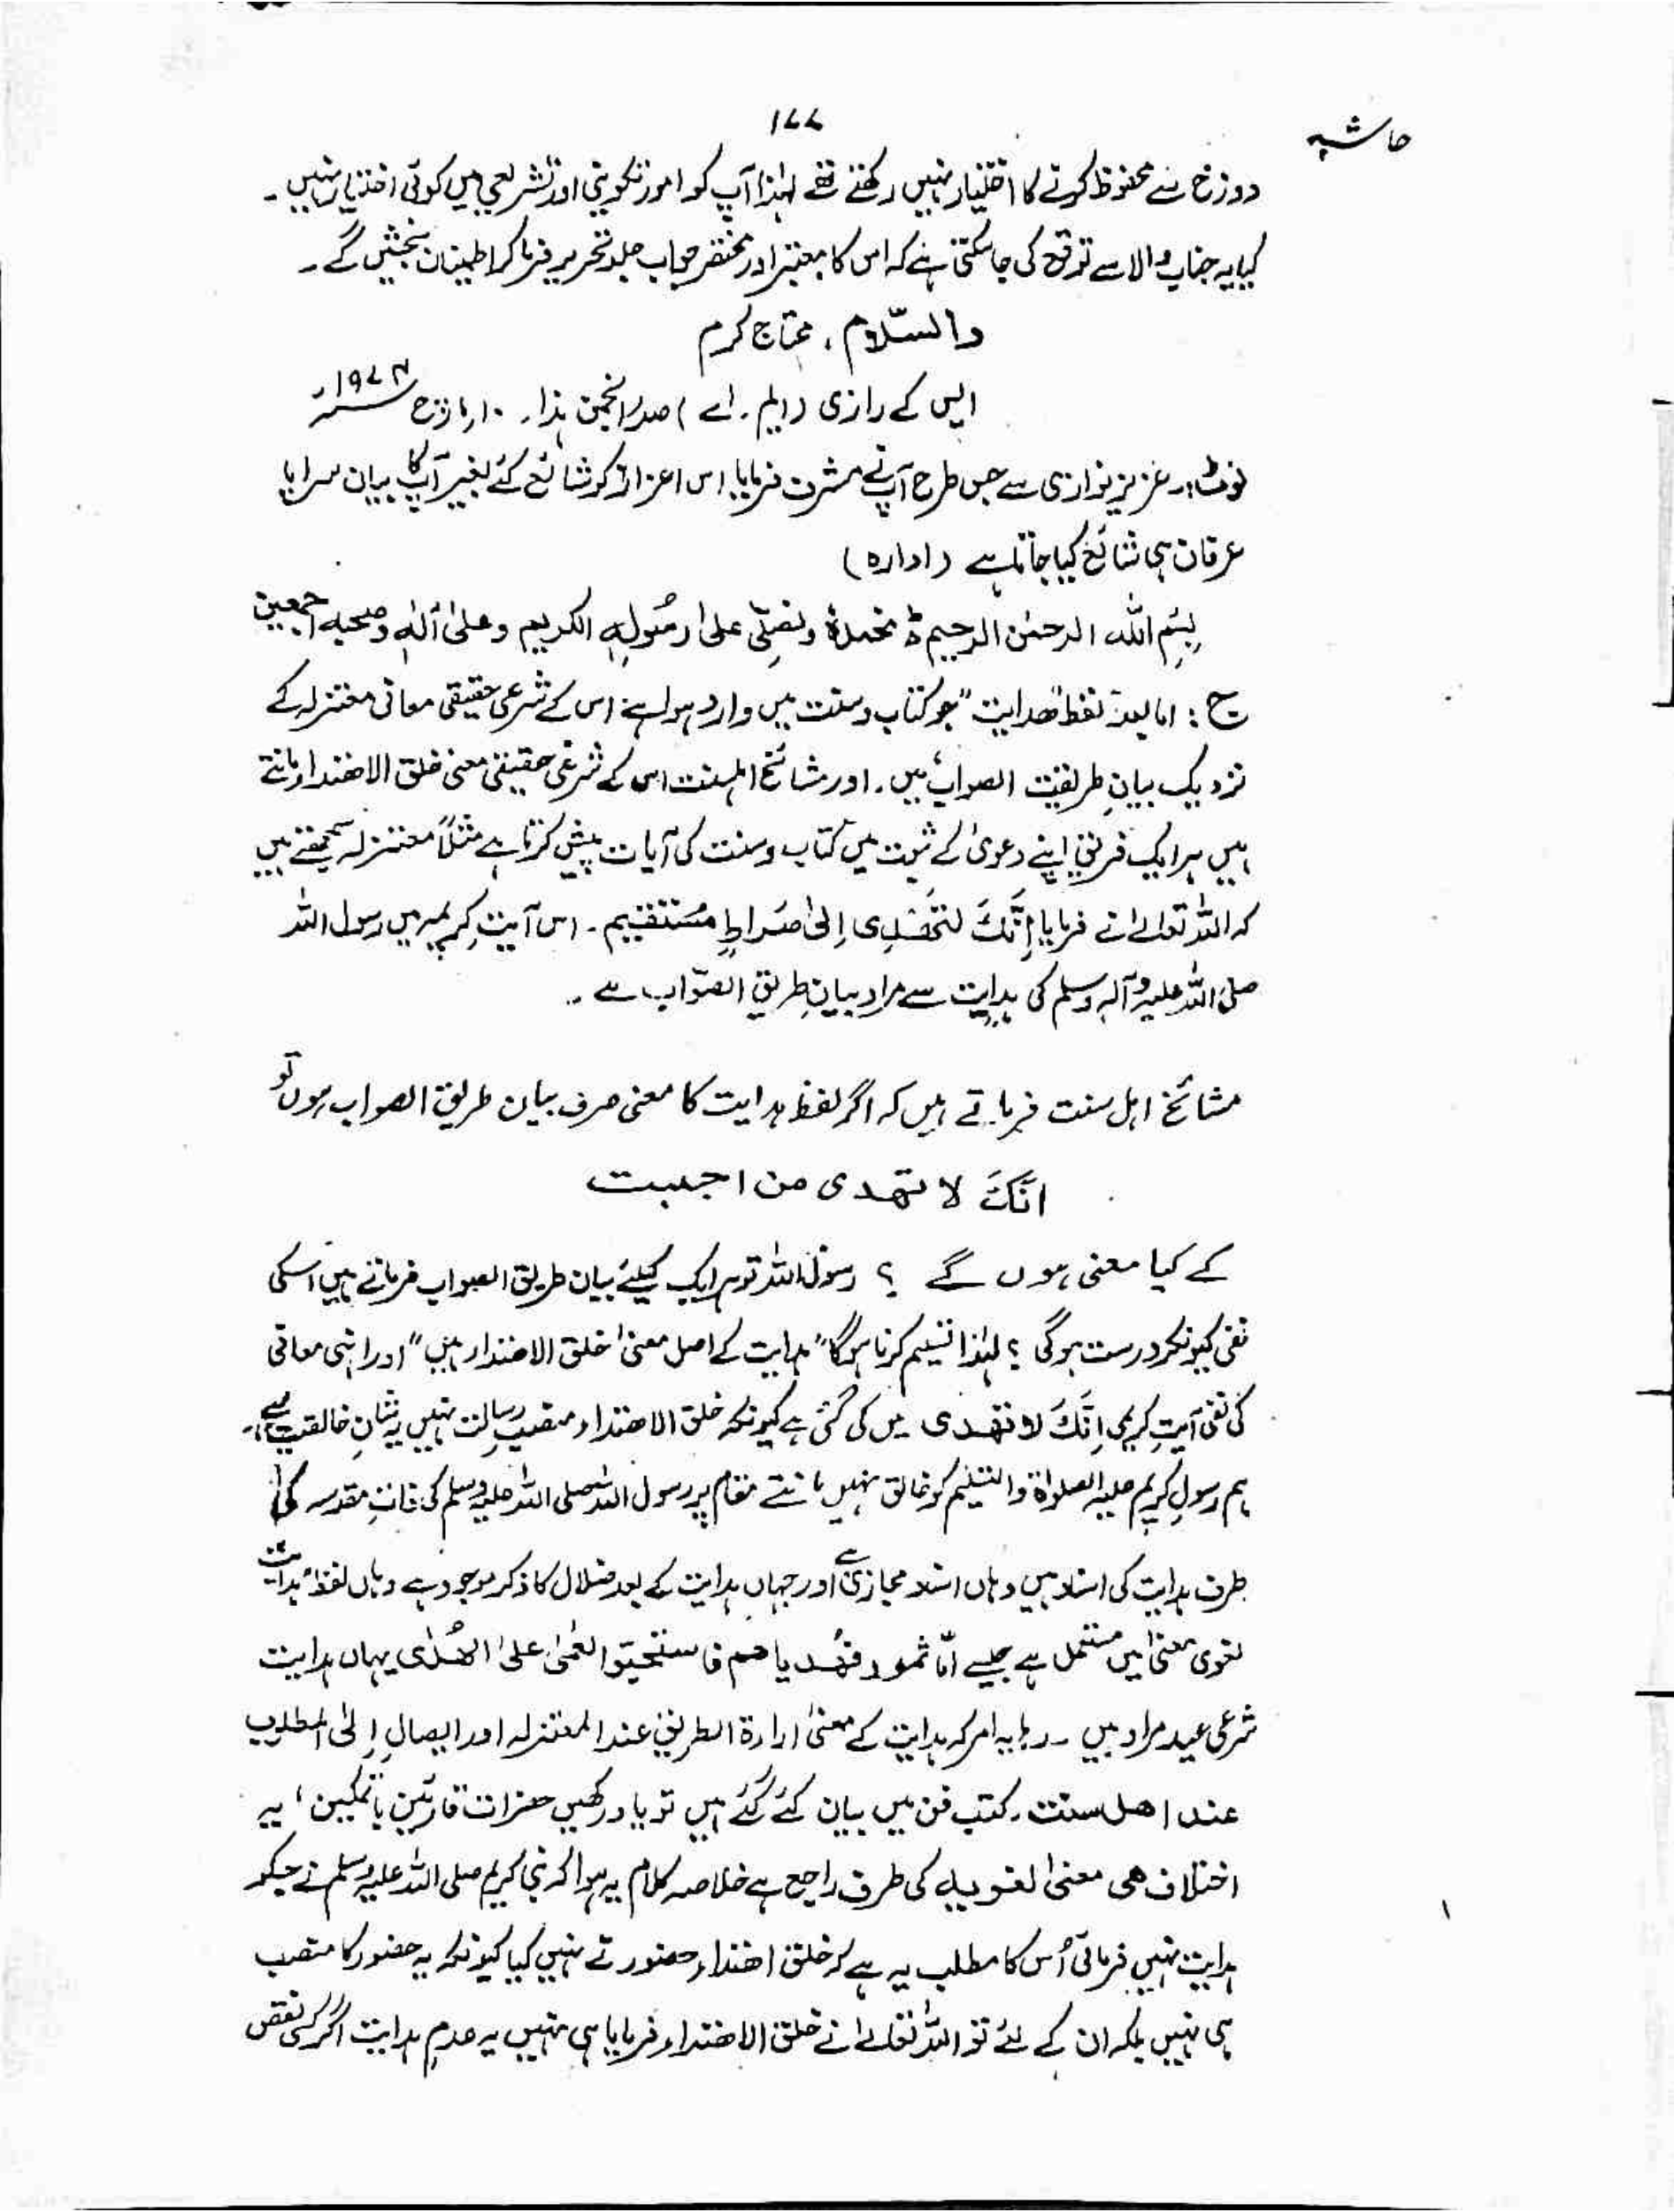 حاشیہ
۱۷۷
دوزخ سے محفوظ کرنے کا اختیار نہیں رکھتے تھے لہٰذا آپ کو امور تکوینی اور تشریعی میں کوئی اختیار نہیں۔
کیا یہ جناب والا سے توقع کی جا سکتی ہے کہ اس کا معتبر اور مختصر جواب جلد تحریر فرما کر اطمینان بخشیں گے۔
والسّلام، محتاج کرم
ایس کے رازی (ایم۔ اے) صدر انجمن ہذا۔ ۱۰ مارچ ۱۹۷۴ء
نوٹ:۔ عزیز نوازی سے جس طرح آپ نے مشرف فرمایا اس اعزاز کو شائع کئے بغیر آپ کا بیان سراپا
عرفان ہی شائع کیا جاتا ہے (ادارہ)
بِسْمِ اللہ الرحمٰن الرحیم ط نحمدہٗ ونصلّی علیٰ رسُولہِ الکریم وعلیٰ اٰلہٖ وصحبہ اجمعین
ج: اما بعد لفظ "ھدایت" جو کتاب و سنت میں وارد ہوا ہے اس کے شرعی حقیقی معانی معتزلہ کے
نزدیک بیانِ طریقت الصواب ہیں۔ اور مشائخ اہلسنت اس کے شرعی حقیقی معنی خلق الاھتداء مانتے
ہیں ہر ایک فریق اپنے دعویٰ کے ثبوت میں کتاب و سنت کی آیات پیش کرتا ہے مثلاً معتزلہ سمجھتے ہیں
کہ اللہ تعالےٰ نے فرمایا اِنَّکَ لتَھْدِی اِلیٰ صِراطٍ مُسْتَقیم۔ اس آیتِ کریمہ میں رسول اللہ
صلی اللہ علیہ وآلہ وسلم کی ہدایت سے مراد بیانِ طریق الصّواب ہے۔
مشائخ اہل سنت فرماتے ہیں کہ اگر لفظ ہدایت کا معنی صرف بیان طریق الصواب ہوں تو
انّکَ لا تھدی من احببت
کے کیا معنی ہوں گے ؟ رسول اللہ تو ہر ایک کیلئے بیان طریق الصواب فرماتے ہیں اسکی
نفی کیونکر درست ہوگی ؟ لہٰذا تسلیم کرنا ہوگا "ہدایت کے اصل معنیٰ خلق الاھتداء ہیں" اور انہی معانی
کی نفی آیتِ کریمہ اِنَّکَ لا تھدی میں کی گئی ہے کیونکہ خلق الاھتداء منصبِ رسالت نہیں یہ شانِ خالقیت ہے۔
ہم رسولِ کریم علیہ الصلوٰۃ والتسلیم کو خالق نہیں مانتے مقام پر رسول اللہ صلی اللہ علیہ وسلم کی ذاتِ مقدسہ کی
طرف ہدایت کی اسناد ہیں وہاں اسناد مجازی ہے اور جہاں ہدایت کے بعد ضلال کا ذکر موجود ہے وہاں لفظ "ہدایت"
لغوی معنیٰ میں مستعمل ہے جیسے امّا ثمود فھدیناھم فاستحبّوا العَمٰی علی الھُدٰی یہاں ہدایت
شرعی مراد ہیں۔ رہا یہ امر کہ ہدایت کے معنیٰ اراءۃ الطریق عند المعتزلہ اور ایصال اِلی المطلوب
عند اھل سنت۔ کتب فن میں بیان کئے گئے ہیں تو یاد رکھیں حضرات قارئین باتمکین، یہ
اختلاف ھی معنیٰ لغویہ کی طرف راجع ہے خلاصہ کلام یہ ہوا کہ نبی کریم صلی اللہ علیہ وسلم نے جسکو
ہدایت نہیں فرمائی اُس کا مطلب یہ ہے کہ خلق اھتداء حضور نے نہیں کیا کیونکہ یہ حضور کا منصب
ہی نہیں بلکہ ان کے لئے تو اللہ تعالےٰ نے خلق الاھتداء فرمایا ہی نہیں یہ عدم ہدایت اگر کسی نقص